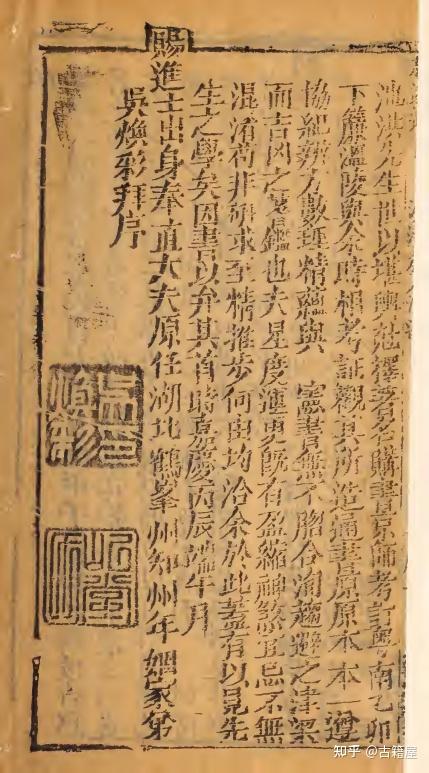 淇先生世以堪輿擇著名購書京師考訂粵南乙卯
下簾溫陵與余時相考証觀其所造通書原原本本一遵
協紀辨方數理精蘊與 憲書無不脗合洵趨避之津梁
而吉凶之蓍鑑也夫星度運更既有盈縮神煞宜忌不無
混淆苟非研求至精推步何由均洽余於此蓋有以見先
生之學矣因書以弁其首時嘉慶丙辰端午月
賜進士出身奉直大夫原任湖北鶴峯州知州年姻家弟
吳煥彩拜序
知乎 @古籍屋